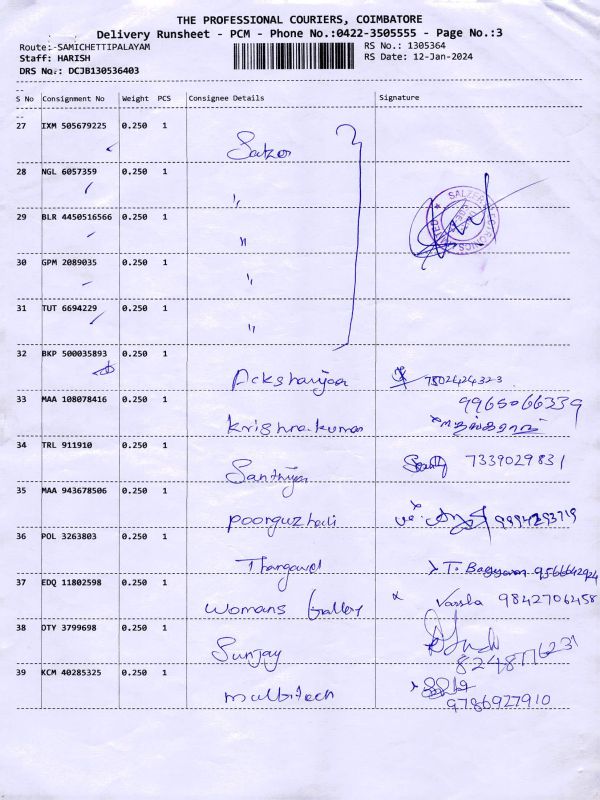 THE PROFESSIONAL COURIERS, COIMBATORE
Delivery Runsheet - PCM - Phone No.:0422-3505555 - Page No.:3
Route:-SAMICHETTIPALAYAM
RS No.: 1305364
Staff: HARISH
RS Date: 12-Jan-2024
DRS No.: DCJB130536403
S No Consignment No Weight PCS Consignee Details Signature
27 IXM 505679225 0.250 1 Salzer
28 NGL 6057359 0.250 1 "
SALZER ELECTRONICS LIMITED
29 BLR 4450516566 0.250 1 "
30 GPM 2089035 0.250 1 "
31 TUT 6694229 0.250 1 "
32 BKP 500035893 0.250 1 7502424323
33 MAA 108078416 0.250 1 Krishna.kumar 9965066339
34 TRL 911910 0.250 1 Santhiya 7339029831
35 MAA 943678506 0.250 1 Poorguzhali 9994293719
36 POL 3263803 0.250 1 Thangavel T. 9566642924
37 EDQ 11802598 0.250 1 Womans Gallery Varsha 9842706458
38 DTY 3799698 0.250 1 Sunjay 8248776231
39 KCM 40285325 0.250 1 multitech 9786927910